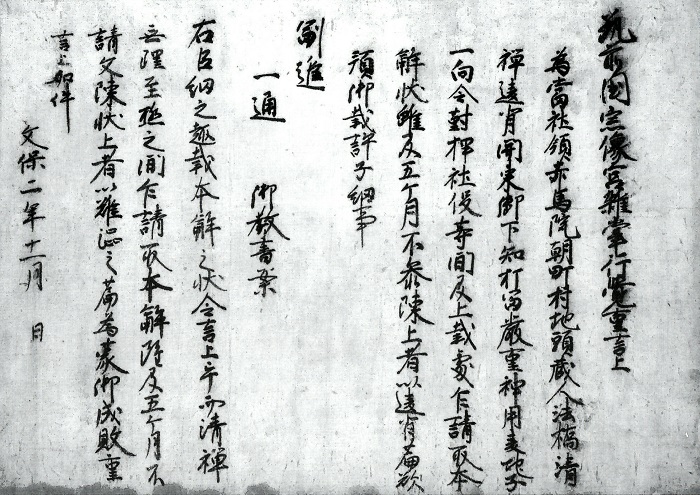 筑前国宗像宮雑掌行覚重言上
為当社領赤馬院朝町村地頭蔵人法橋清
禅違背関東御下知打留厳重神用麦地子
一向令対捍社役等間及上裁処乍請取本
解状雖及五ケ月不参陳上者以違背篇欲
預御裁許子細事
副進
一通 御教書案
右巨細之趣載本解之状令言上乎而清禅
無理至極之間乍請取本解雖及五ケ月不
請文陳状上者以難渋之篇為蒙御成敗重
言上如件
文保二年十二月 日